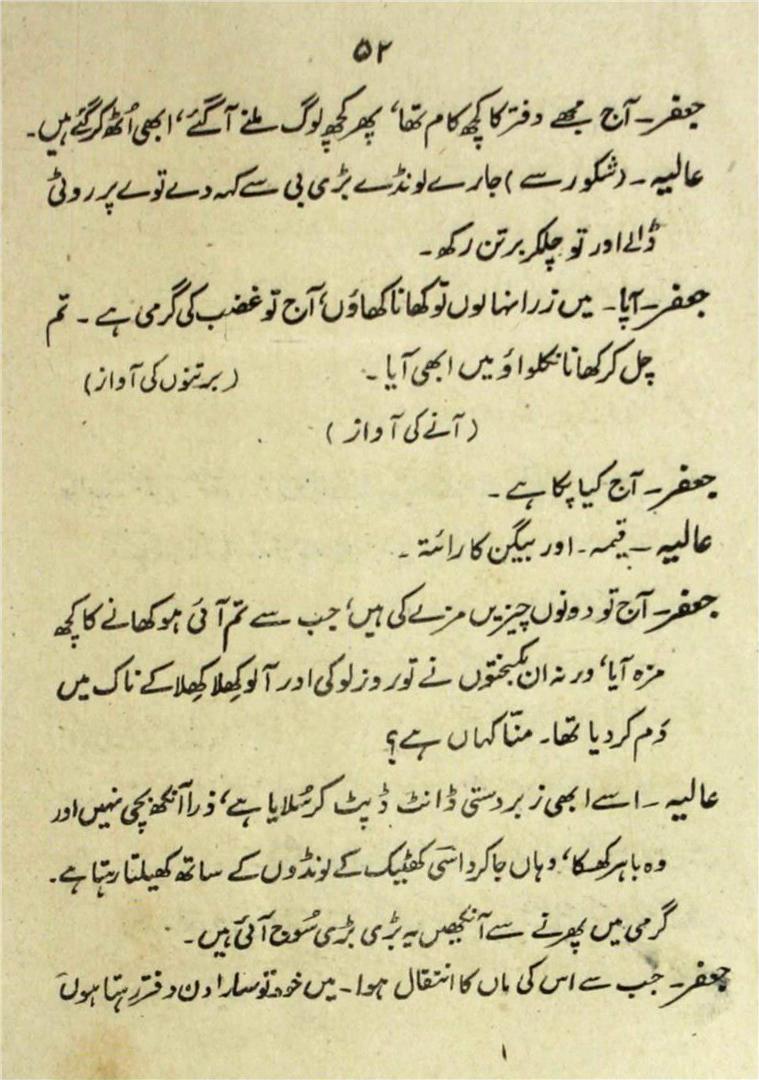 ۵۲
جعفر۔ آج مجھے دفتر کا کچھ کام تھا، پھر کچھ لوگ ملنے آگئے، ابھی اُٹھ کر گئے ہیں۔
عالیہ۔ (شکور سے) جارے لونڈے بڑی بی سے کہہ دے توے پر روٹی
ڈالے اور تو چلکر برتن رکھ۔
جعفر۔ آپا۔ میں زرا نہالوں تو کھانا کھاؤں، آج تو غضب کی گرمی ہے۔ تم
چل کر کھانا نکلواؤ میں ابھی آیا۔ (برتنوں کی آواز)
(آنے کی آواز)
جعفر۔ آج کیا پکا ہے۔
عالیہ۔ قیمہ۔ اور بیگن کا رائتہ۔
جعفر۔ آج تو دونوں چیزیں مزے کی ہیں، جب سے تم آئی ہو کھانے کا کچھ
مزہ آیا، ورنہ ان کمبختوں نے تو روز لوکی اور آلو کھلا کھلا کے ناک میں
دَم کر دیا تھا۔ منّا کہاں ہے؟
عالیہ۔ اسے ابھی زبردستی ڈانٹ ڈپٹ کر سُلایا ہے، ذرا آنکھ بچی نہیں اور
وہ باہر کھسکا، وہاں جا کر داسی کھٹیک کے لونڈوں کے ساتھ کھیلتا رہتا ہے۔
گرمی میں پھرنے سے آنکھیں یہ بڑی بڑی سُوج آئی ہیں۔
جعفر۔ جب سے اس کی ماں کا انتقال ہوا۔ میں خود تو سارا دن دفتر رہتا ہوں